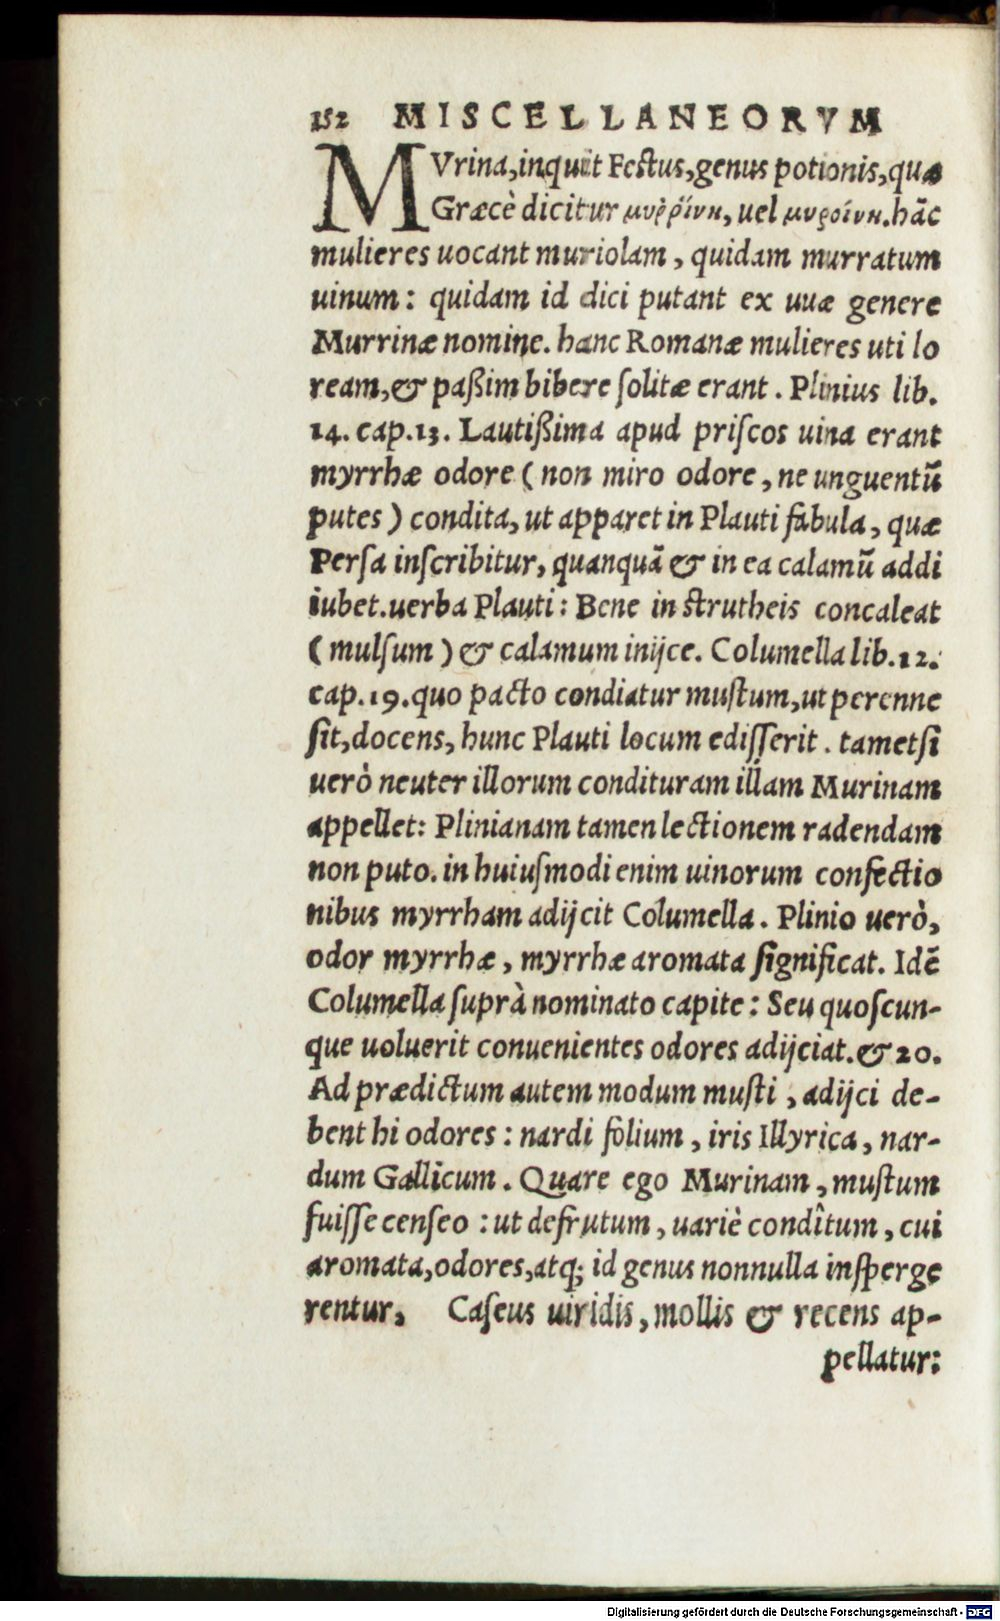 152 MISCELLANEORVM
MVrina, inquit Festus, genus potionis, quæ
Græcè dicitur μυῤῥίνη, uel μυρσίνη. hãc
mulieres uocant muriolam, quidam murratum
uinum: quidam id dici putant ex uuæ genere
Murrinæ nomine. hanc Romanæ mulieres uti lo
ream, & paßim bibere ſolitæ erant. Plinius lib.
14. cap. 13. Lautißima apud priſcos uina erant
myrrhæ odore (non miro odore, ne unguentũ
putes) condita, ut apparet in Plauti fabula, quæ
Perſa inſcribitur, quanquã & in ea calamũ addi
iubet. uerba Plauti: Bene in strutheis concaleat
(mulſum) & calamum inijce. Columella lib. 12.
cap. 19. quo pacto condiatur muſtum, ut perenne
ſit, docens, hunc Plauti locum ediſſerit. tametſi
uerò neuter illorum condituram illam Murinam
appellet: Plinianam tamen lectionem radendam
non puto. in huiuſmodi enim uinorum confectio
nibus myrrham adijcit Columella. Plinio uerò,
odor myrrhæ, myrrhæ aromata ſignificat. Idẽ
Columella ſuprà nominato capite: Seu quoſcun-
que uoluerit conuenientes odores adijciat. & 20.
Ad prædictum autem modum muſti, adijci de-
bent hi odores: nardi folium, iris Illyrica, nar-
dum Gallicum. Quare ego Murinam, muſtum
fuiſſe cenſeo: ut defrutum, uariè condîtum, cui
aromata, odores, atq; id genus nonnulla inſperge
rentur. Caſeus uiridis, mollis & recens ap-
pellatur:
Digitalisierung gefördert durch die Deutsche Forschungsgemeinschaft - DFG